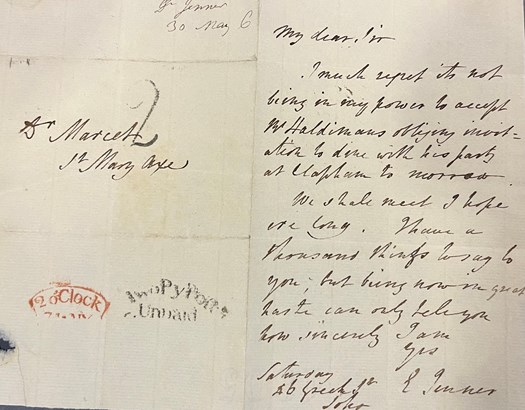 Dr Jenner
30 May 6
2
Dr Marcet
St Mary Axe
2 o'Clock
Two Py Post
Unpaid
My dear Sir
I much regret its not
being in my power to accept
Mr Haldimans obliging invit-
ation to dine with his party
at Clapham to morrow.
We shall meet I hope
ere long. I have a
thousand things to say to
you; but being now in great
haste can only tell you
how sincerely I am
Yrs
E Jenner
Saturday
26 Greek St
Soho